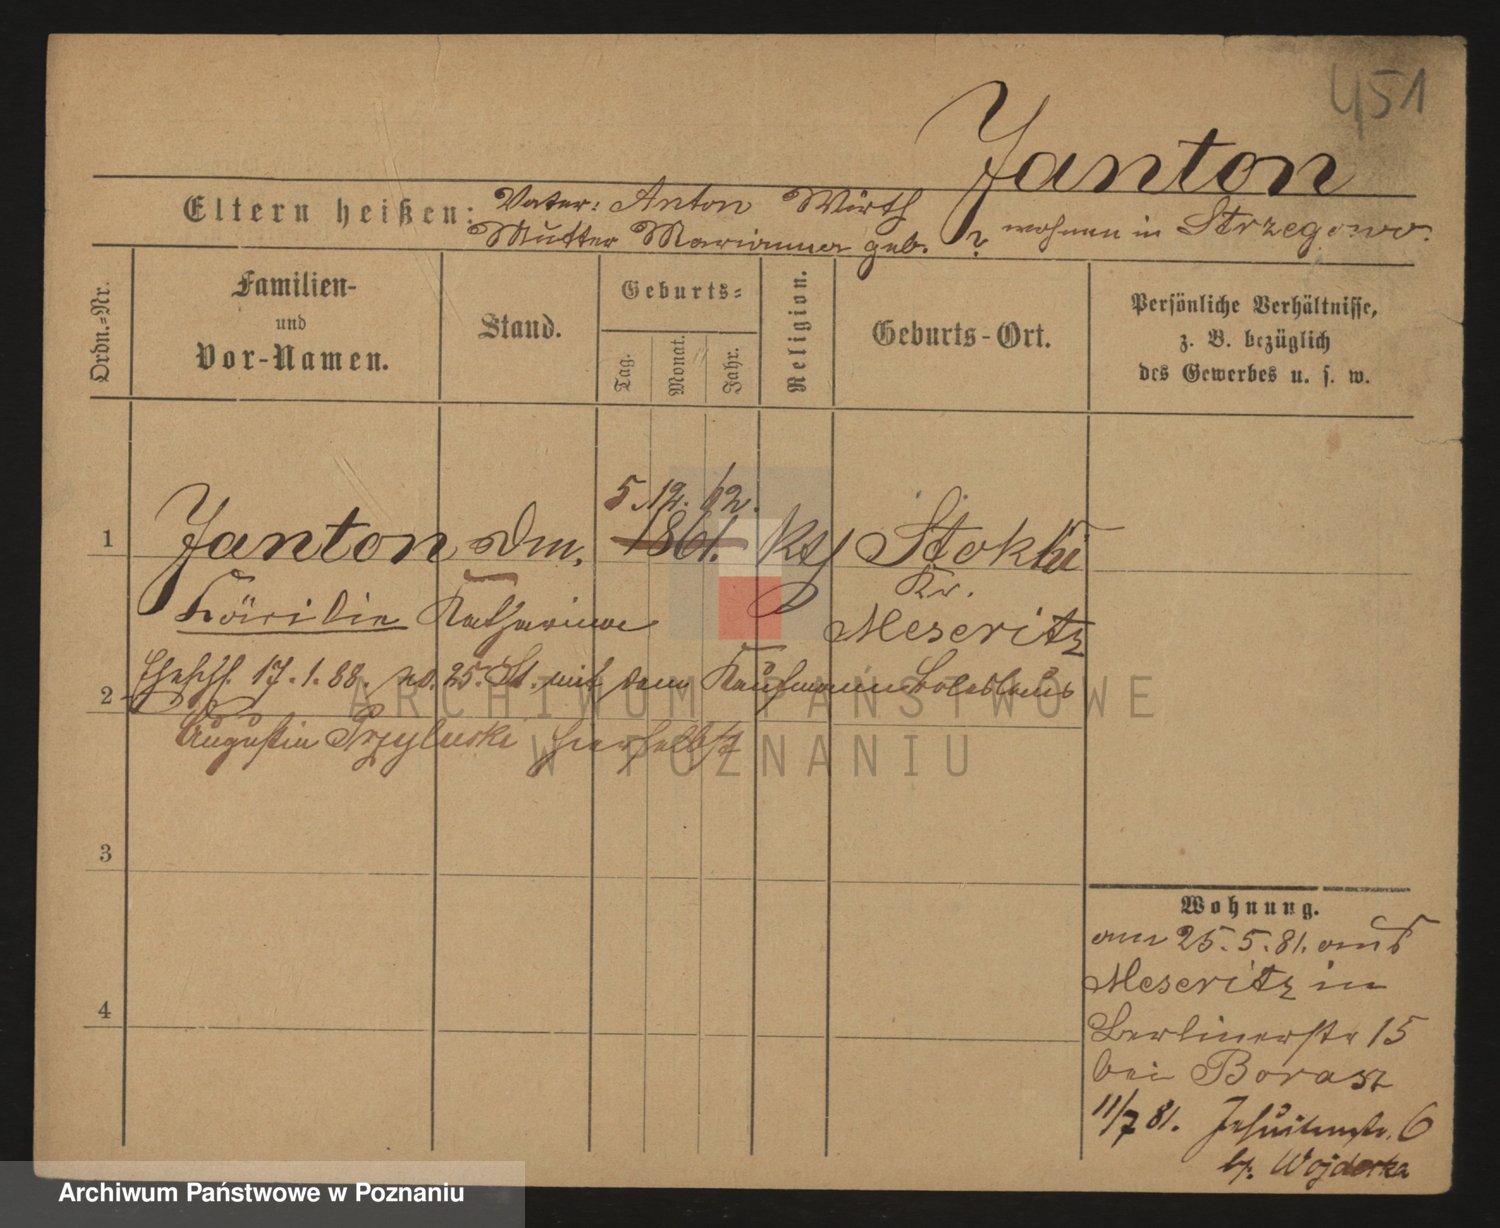 451
Janton
Eltern heißen: Vater: Anton Wirth
Mutter Marianna geb. ? wohnen in Strzegowo.
Ordn.=Nr.
Familien-
und
Vor-Namen.
Stand.
Geburts=
Tag.
Monat.
Jahr.
Religion.
Geburts-Ort.
Persönliche Verhältnisse,
z. B. bezüglich
des Gewerbes u. s. w.
5. 12. 62.
1 Janton Dm. 1861. ktj Stokki
Kr.
Cäcilie Katharina Meseritz
2 Ehesch. 17.1.88. No. 25. St. mit dem Kaufmann Boleslaus
Augustin Przyluski hierselbst
3
4
Wohnung.
am 25.5.81. aus
Meseritz in
Berlinerstr 15
bei Borasz
11/7 81. Jesuitenstr. 6
b. Wojderka
ARCHIWUM PAŃSTWOWE
W POZNANIU
Archiwum Państwowe w Poznaniu